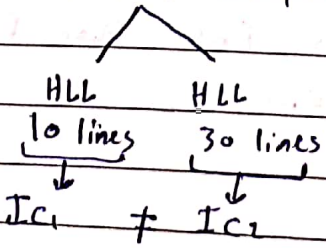 HLL HLL
10 lines 30 lines
IC1 ≠ IC2